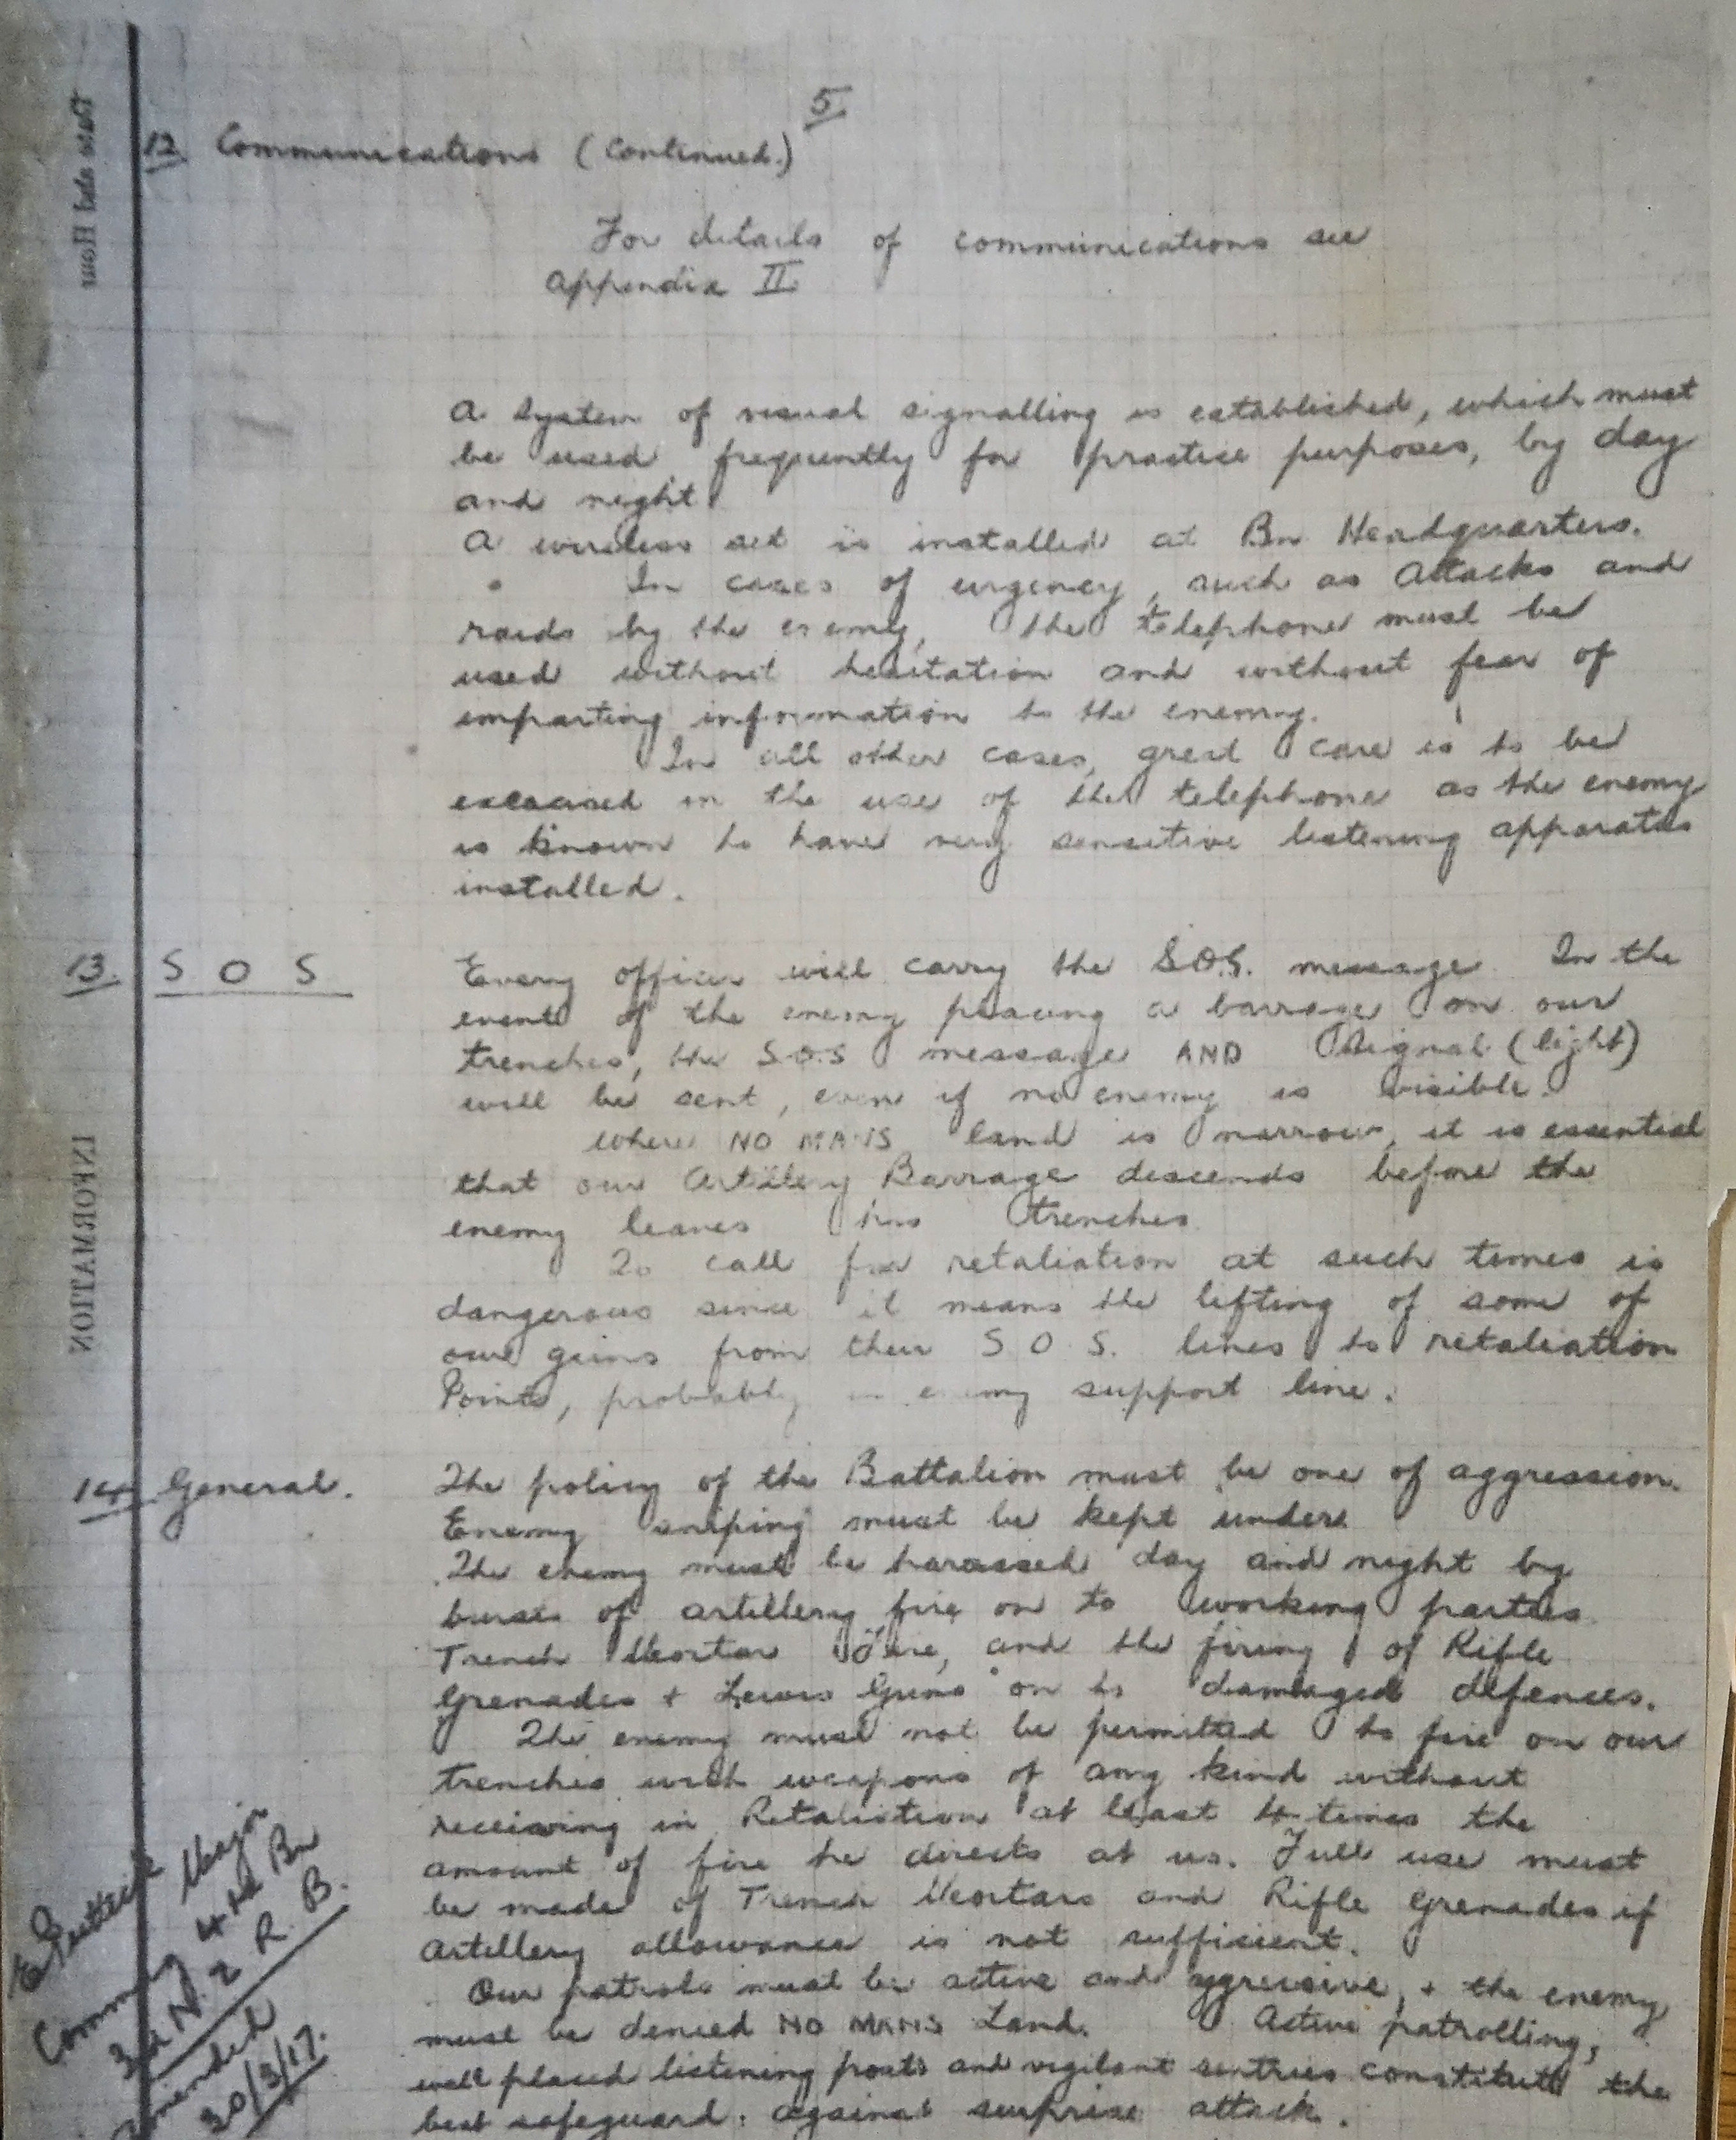 5
12. Communications (Continued.)
For details of communications see
Appendix II.
A system of visual signalling is established, which must
be used frequently for practice purposes, by day
and night
A wireless set is installed at Bn Headquarters.
In cases of urgency, such as Attacks and
raids by the enemy, the telephone must be
used without hesitation and without fear of
imparting information to the enemy.
In all other cases, great care is to be
exercised in the use of the telephone as the enemy
is known to have very sensitive listening apparatus
installed.
13. S O S
Every officer will carry the S.O.S. message. In the
event of the enemy placing a barrage on our
trenches, the S.O.S message AND Signal (light)
will be sent, even if no enemy is visible.
Where NO MANS land is narrow, it is essential
that our Artillery Barrage descends before the
enemy leaves his trenches.
To call for retaliation at such times is
dangerous since it means the lifting of some of
our guns from their S O S. lines to retaliation
Points, probably in enemy support line.
14. General.
The policy of the Battalion must be one of aggression.
Enemy sniping must be kept under.
The enemy must be harassed day and night by
bursts of artillery fire on to working parties
Trench Mortar Fire, and the firing of Rifle
Grenades + Lewis Guns on to damaged defences.
The enemy must not be permitted to fire on our
trenches with weapons of any kind without
receiving in Retaliation at least 4 times the
amount of fire he directs at us. Full use must
be made of Trench Mortars and Rifle Grenades if
Artillery allowance is not sufficient.
Our patrols must be active and aggressive, + the enemy
must be denied NO MANS Land. Active patrolling,
well placed listening posts and vigilant sentries constitute the
best safeguard. against surprise attack.
Major
Comming 4th Bn
3rd N.Z R. B.
amended
30/3/17.
Date and Hour
INFORMATION